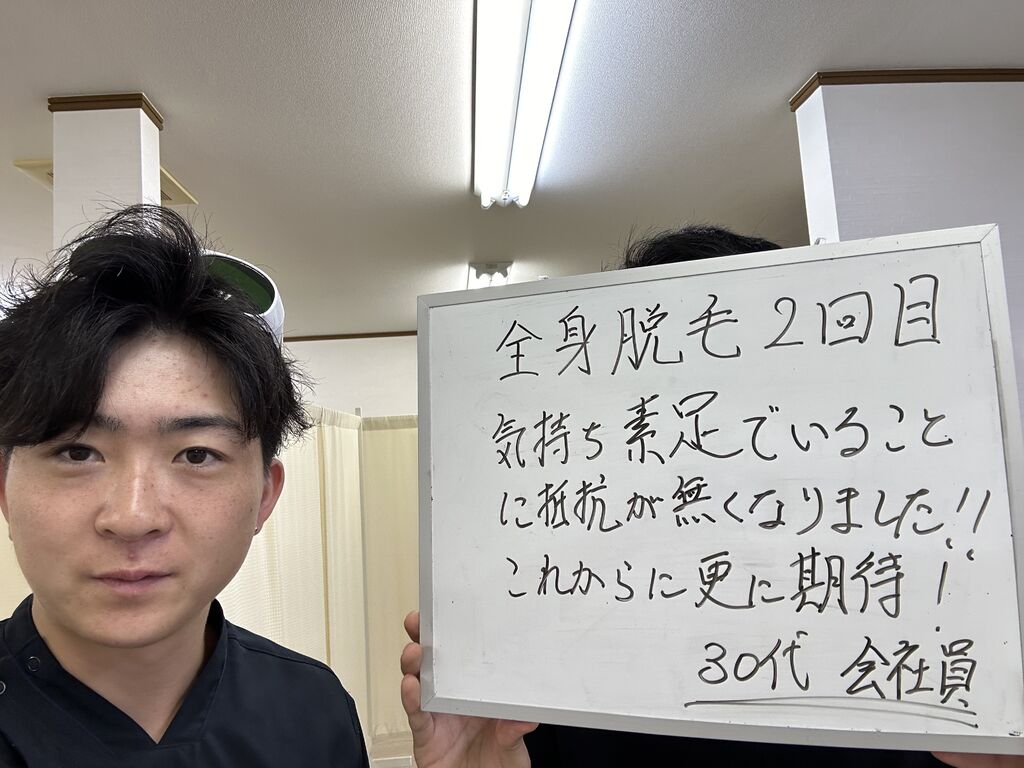 全身脱毛2回目
気持ち素足でいること
に抵抗が無くなりました!!
これからに更に期待!
30代 会社員